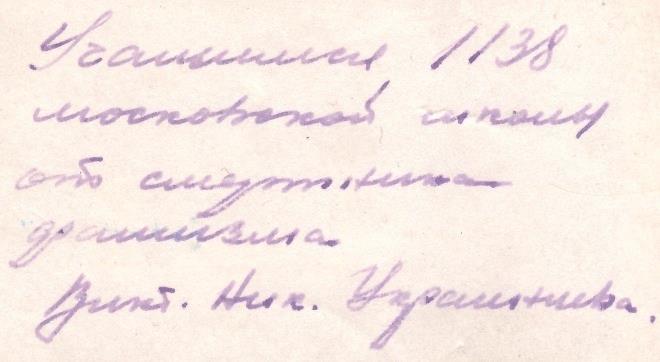 Учащимся 1138
московской школы
от смертника
фашизма
Викт. Ник. Украинцева.